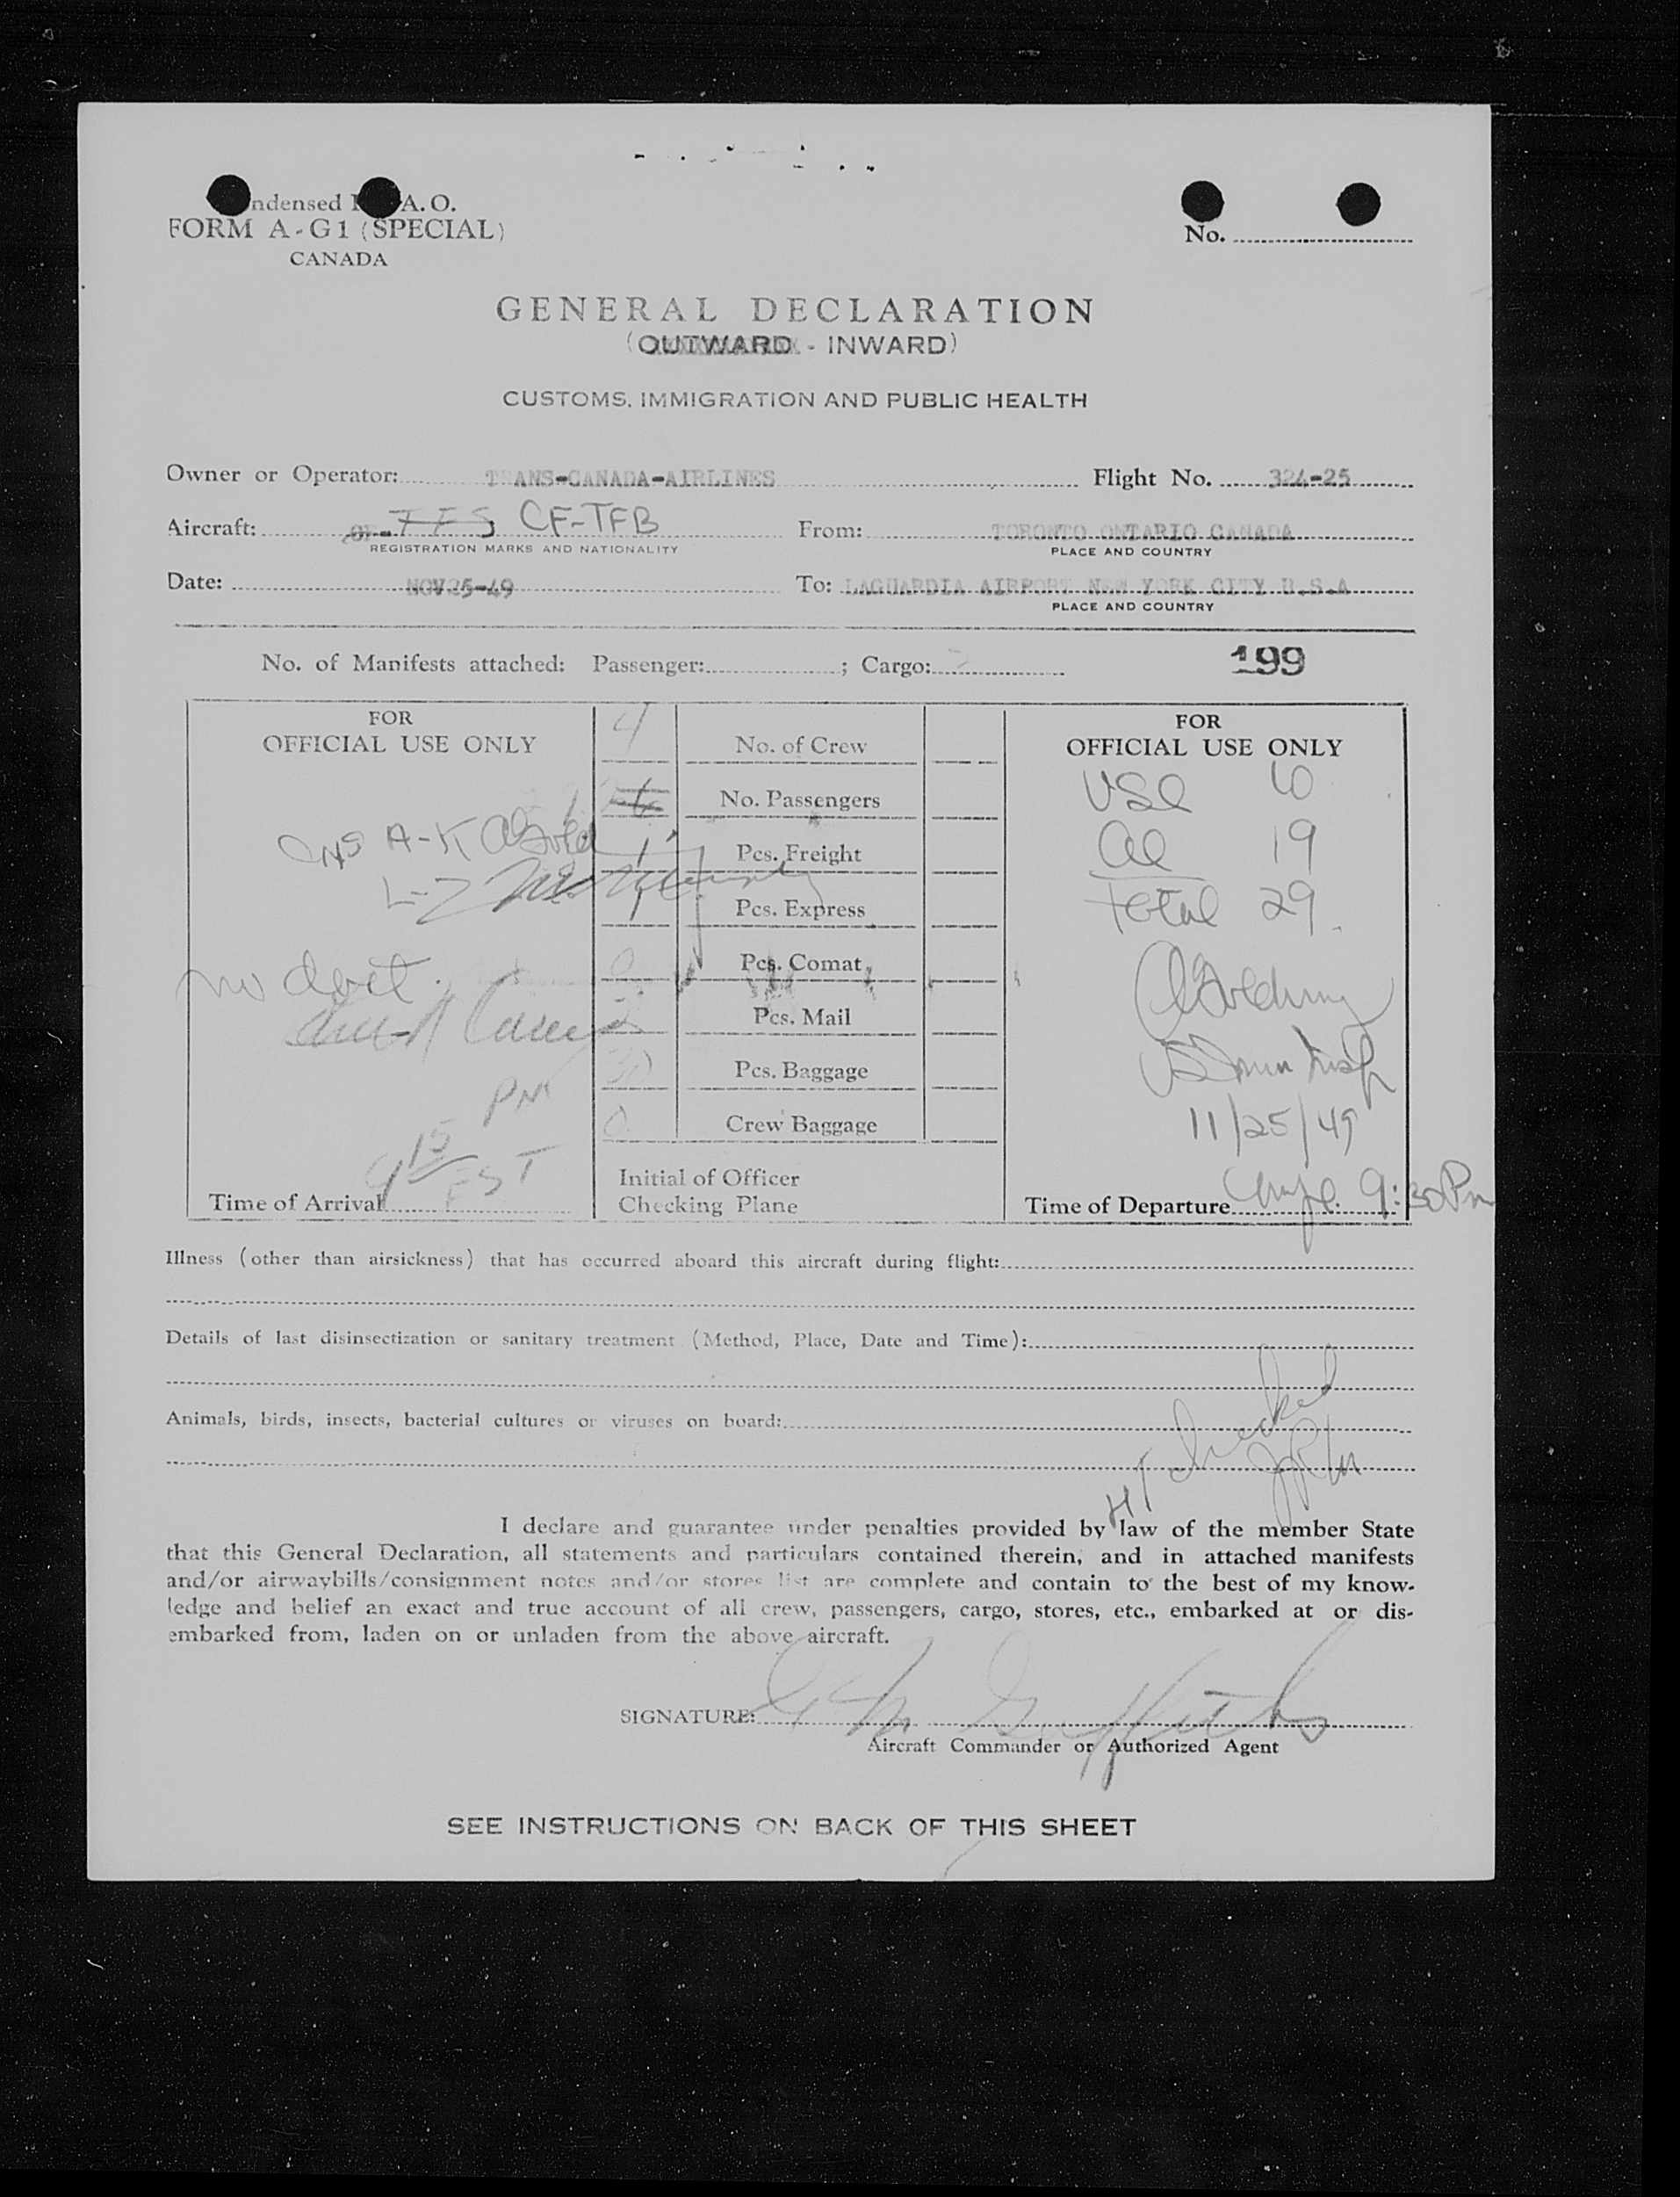 ndensed I A. O.
FORM A-G1 (SPECIAL)
CANADA
No.
GENERAL DECLARATION
(OUTWARD - INWARD)
CUSTOMS, IMMIGRATION AND PUBLIC HEALTH
Owner or Operator: TRANS-CANADA-AIRLINES Flight No. 324-25
Aircraft: CF-TFB From: TORONTO ONTARIO CANADA
REGISTRATION MARKS AND NATIONALITY PLACE AND COUNTRY
Date: NOV25-49 To: LAGUARDIA AIRPORT NEW YORK CITY U.S.A
PLACE AND COUNTRY
No. of Manifests attached: Passenger: ; Cargo: 199
FOR
OFFICIAL USE ONLY
INS A-K
L-Z
PM
9 15 EST
Time of Arrival
4 No. of Crew
No. Passengers
1 Pcs. Freight
1 Pcs. Express
0 Pcs. Comat
Pcs. Mail
Pcs. Baggage
0 Crew Baggage
Initial of Officer
Checking Plane
FOR
OFFICIAL USE ONLY
USC 10
al 19
Total 29
11/25/49
Time of Departure 9:30 Pm
Illness (other than airsickness) that has occurred aboard this aircraft during flight:
Details of last disinsectization or sanitary treatment (Method, Place, Date and Time):
Animals, birds, insects, bacterial cultures or viruses on board:
checked
I declare and guarantee under penalties provided by law of the member State
that this General Declaration, all statements and particulars contained therein, and in attached manifests
and/or airwaybills/consignment notes and/or stores list are complete and contain to the best of my know-
ledge and belief an exact and true account of all crew, passengers, cargo, stores, etc., embarked at or dis-
embarked from, laden on or unladen from the above aircraft.
SIGNATURE: Griffiths
Aircraft Commander or Authorized Agent
SEE INSTRUCTIONS ON BACK OF THIS SHEET